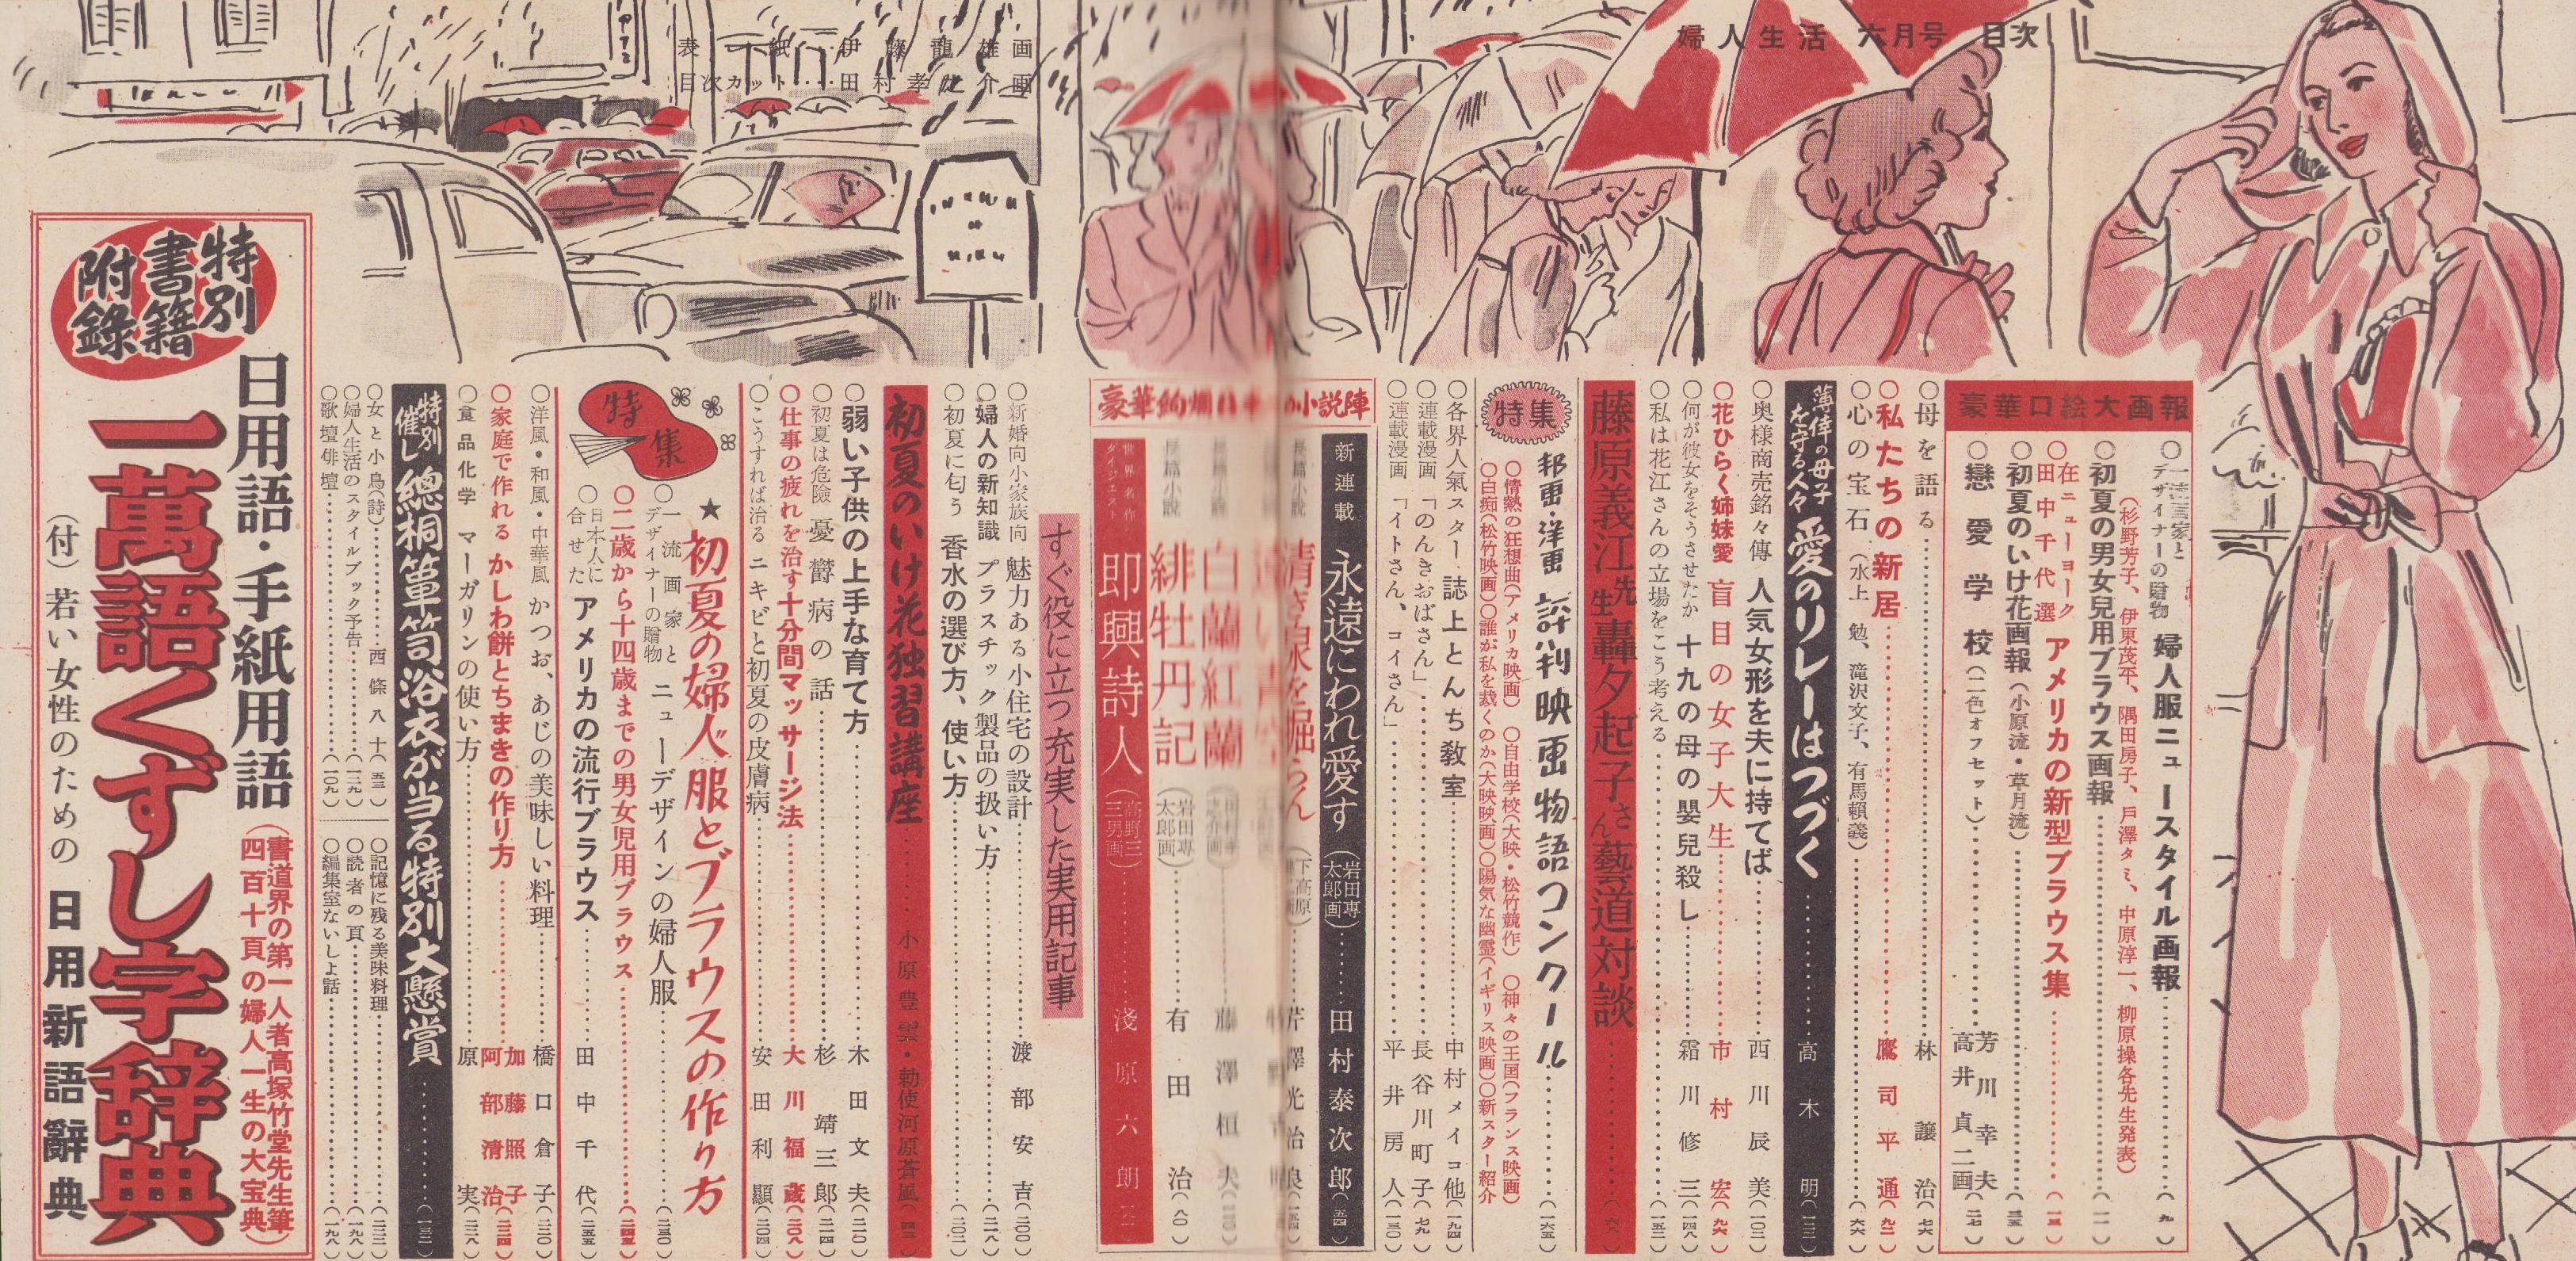 婦人生活 六月号 目次
表紙‥‥伊藤龍雄画
目次カット‥‥田村孝之介画
豪華口絵大画報
○一流画家とデザイナーの贈物 婦人服ニュースタイル画報
(杉野芳子、伊東茂平、隅田房子、戸澤タミ、中原淳一、柳原操各先生発表)
○初夏の男女兒用ブラウス画報
○在ニューヨーク田中千代選 アメリカの新型ブラウス集
○初夏のいけ花画報(小原流・草月流)
○戀愛学校(二色オフセット) 芳川幸夫 高井貞二画
○母を語る 林譲治
○私たちの新居 鷹司平通
○心の宝石(水上勉、滝沢文子、有馬頼義)
薄倖の母子を守る人々 愛のリレーはつづく 高木明
○奥様商売銘々傳 人気女形を夫に持てば 西川辰美
○花ひらく姉妹愛 盲目の女子大生 市村宏
○何が彼女をそうさせたか 十九の母の嬰兒殺し 霜川修三
○私は花江さんの立場をこう考える
藤原義江先生轟夕起子さん藝道対談
特集
邦画・洋画 評判映画物語コンクール
○情熱の狂想曲(アメリカ映画) ○自由学校(大映・松竹競作) ○神々の王国(フランス映画)
○白痴(松竹映画)○誰が私を裁くのか(大映映画)○陽気な幽霊(イギリス映画)○新スター紹介
○各界人氣スター 誌上とんち教室 中村メイコ他
○連載漫画 「のんきおばさん」 長谷川町子
○連載漫画 「イトさん、コイさん」 平井房人
小説陣
新連載 永遠にわれ愛す(岩田専太郎画) 田村泰次郎
長篇小説 清き泉を掘らん 芹澤光治良
長篇小説 白蘭紅蘭 藤澤桓夫
長篇小説 緋牡丹記(岩田専太郎画) 有田治
世界名作ダイジェスト 即興詩人(高野三三男画) 淺原六朗
すぐ役に立つ充実した実用記事
○新婚向小家族向 魅力ある小住宅の設計 渡部安吉
○婦人の新知識 プラスチック製品の扱い方
○初夏に匂う 香水の選び方、使い方
初夏のいけ花独習講座 小原豊雲・勅使河原蒼風
○弱い子供の上手な育て方 木田文夫
○初夏は危險 憂欝病の話 杉靖三郎
○仕事の疲れを治す十分間マッサージ法 大川福蔵
○こうすれば治る ニキビと初夏の皮膚病 安田利顯
特集
★初夏の婦人服とブラウスの作り方
○一流画家とデザイナーの贈物 ニューデザインの婦人服
○二歳から十四歳までの男女児用ブラウス
○日本人に合せた アメリカの流行ブラウス 田中千代
○洋風・和風・中華風 かつお、あじの美味しい料理 橋口倉子
○家庭で作れる かしわ餅とちまきの作り方 加藤照子 阿部清治
○食品化学 マーガリンの使い方 原実
特別催し 總桐簞笥浴衣が当る特別大懸賞
○女と小鳥(詩) 西條八十
○婦人生活のスタイルブック予告
○歌壇俳壇
○記憶に残る美味料理
○読者の頁
○編集室ないしょ話
特別書籍附錄
日用語・手紙用語
一萬語くずし字辞典
(書道界の第一人者高塚竹堂先生筆
四百十頁の婦人一生の大宝典)
(付)若い女性のための 日用新語辭典